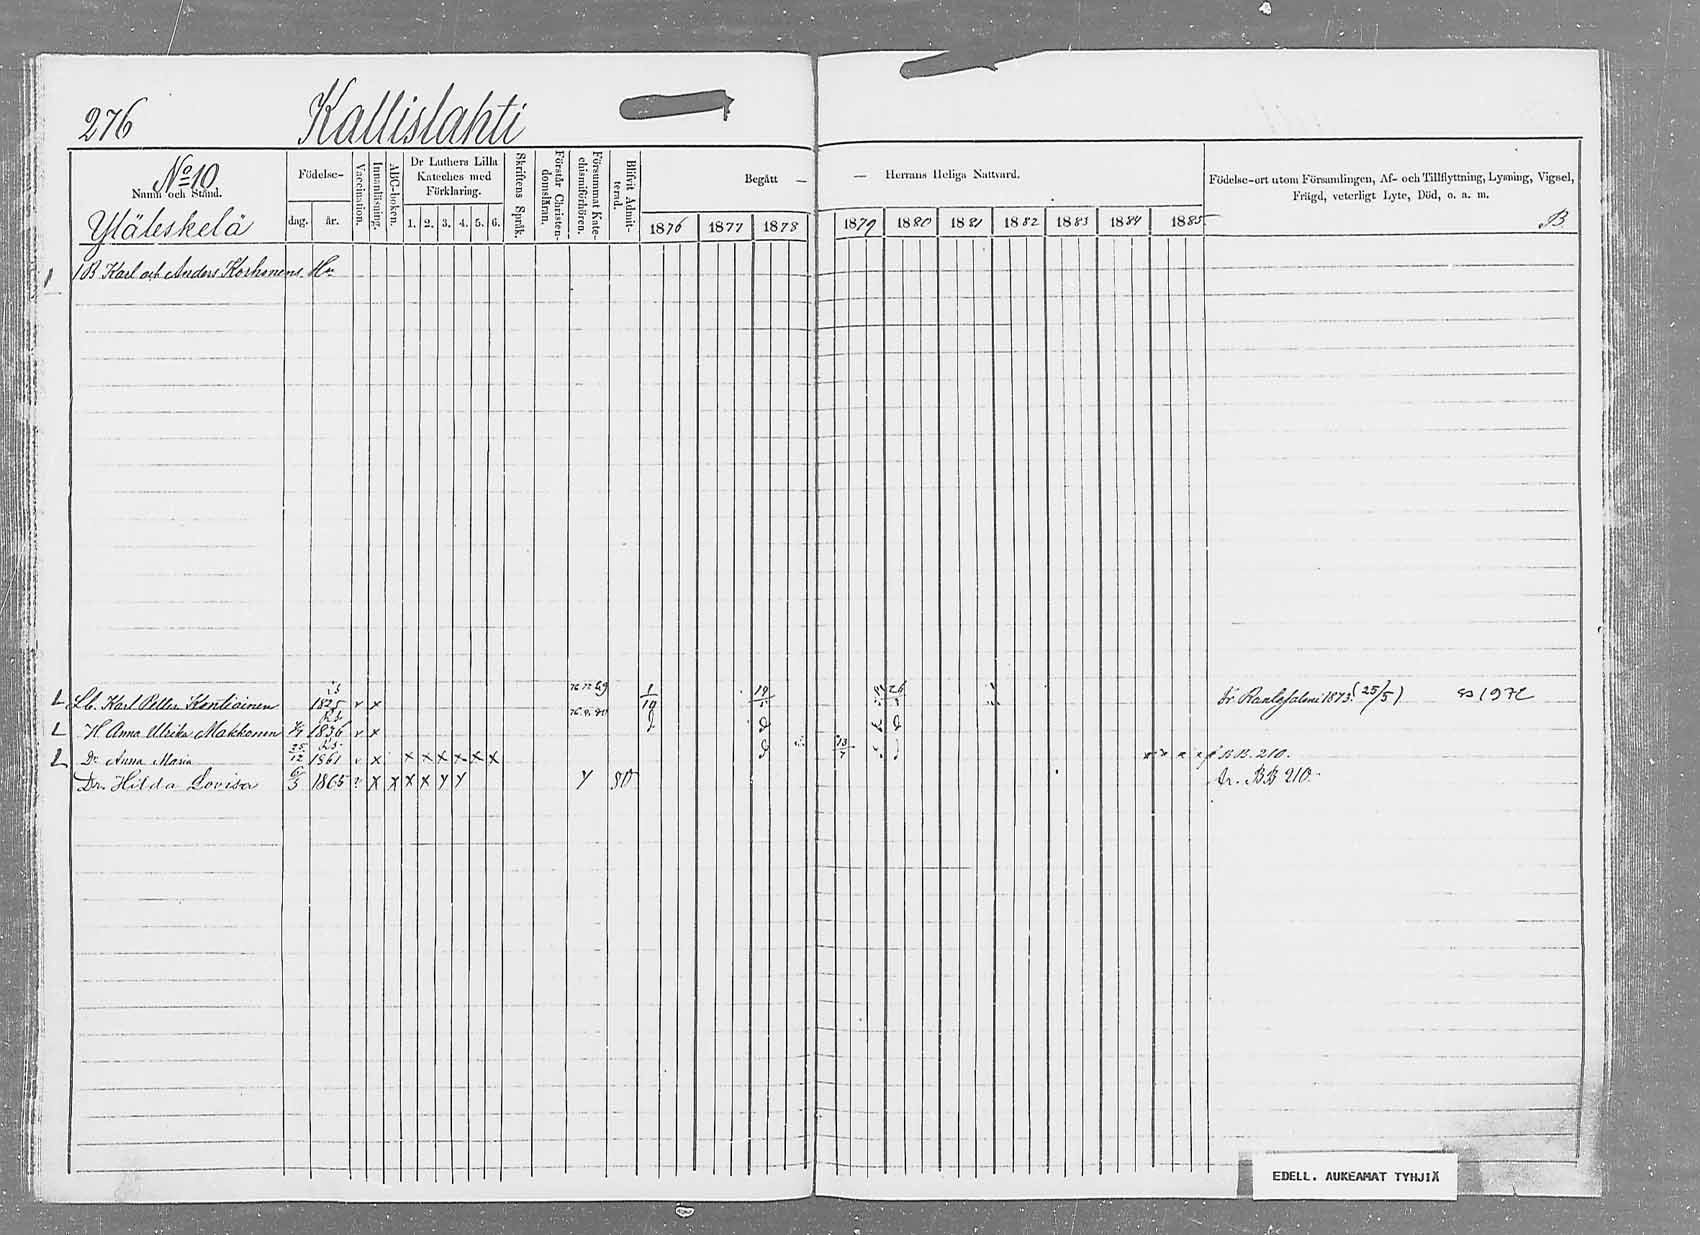 276 Kallislahti
No 10
Namn och Stånd.
Yläleskelä
Födelse-
dag. år.
Vaccination.
Innanläsning.
ABC-boken.
Dr Luthers Lilla
Kateches med
Förklaring.
1. 2. 3. 4. 5. 6.
Skriftens Språk.
Förstår Christen-
domsläran.
Försummat Kate-
chismiförhören.
Blifvit Admit-
terad.
Begått —
1876 1877 1878
— Herrans Heliga Nattvard.
1879 1880 1881 1882 1883 1884 1885
Födelse-ort utom Församlingen, Af- och Tillflyttning, Lysning, Vigsel,
Frägd, veterligt Lyte, Död, o. a. m.
B
1 B Karl och Anders Korhonens Hn
Lb. Karl Petter Kontiainen 1825 v x fr. Rantasalmi 1873 (25/5)
H Anna Ulrika Makkonen 1836 v x
Dr Anna Maria 25/12 1861 v x x x x x x x B.B. 210.
Dr. Hilda Lovisa 6/3 1865 v x x x x y y y 80 tr. BB 210.
EDELL. AUKEAMAT TYHJIÄ